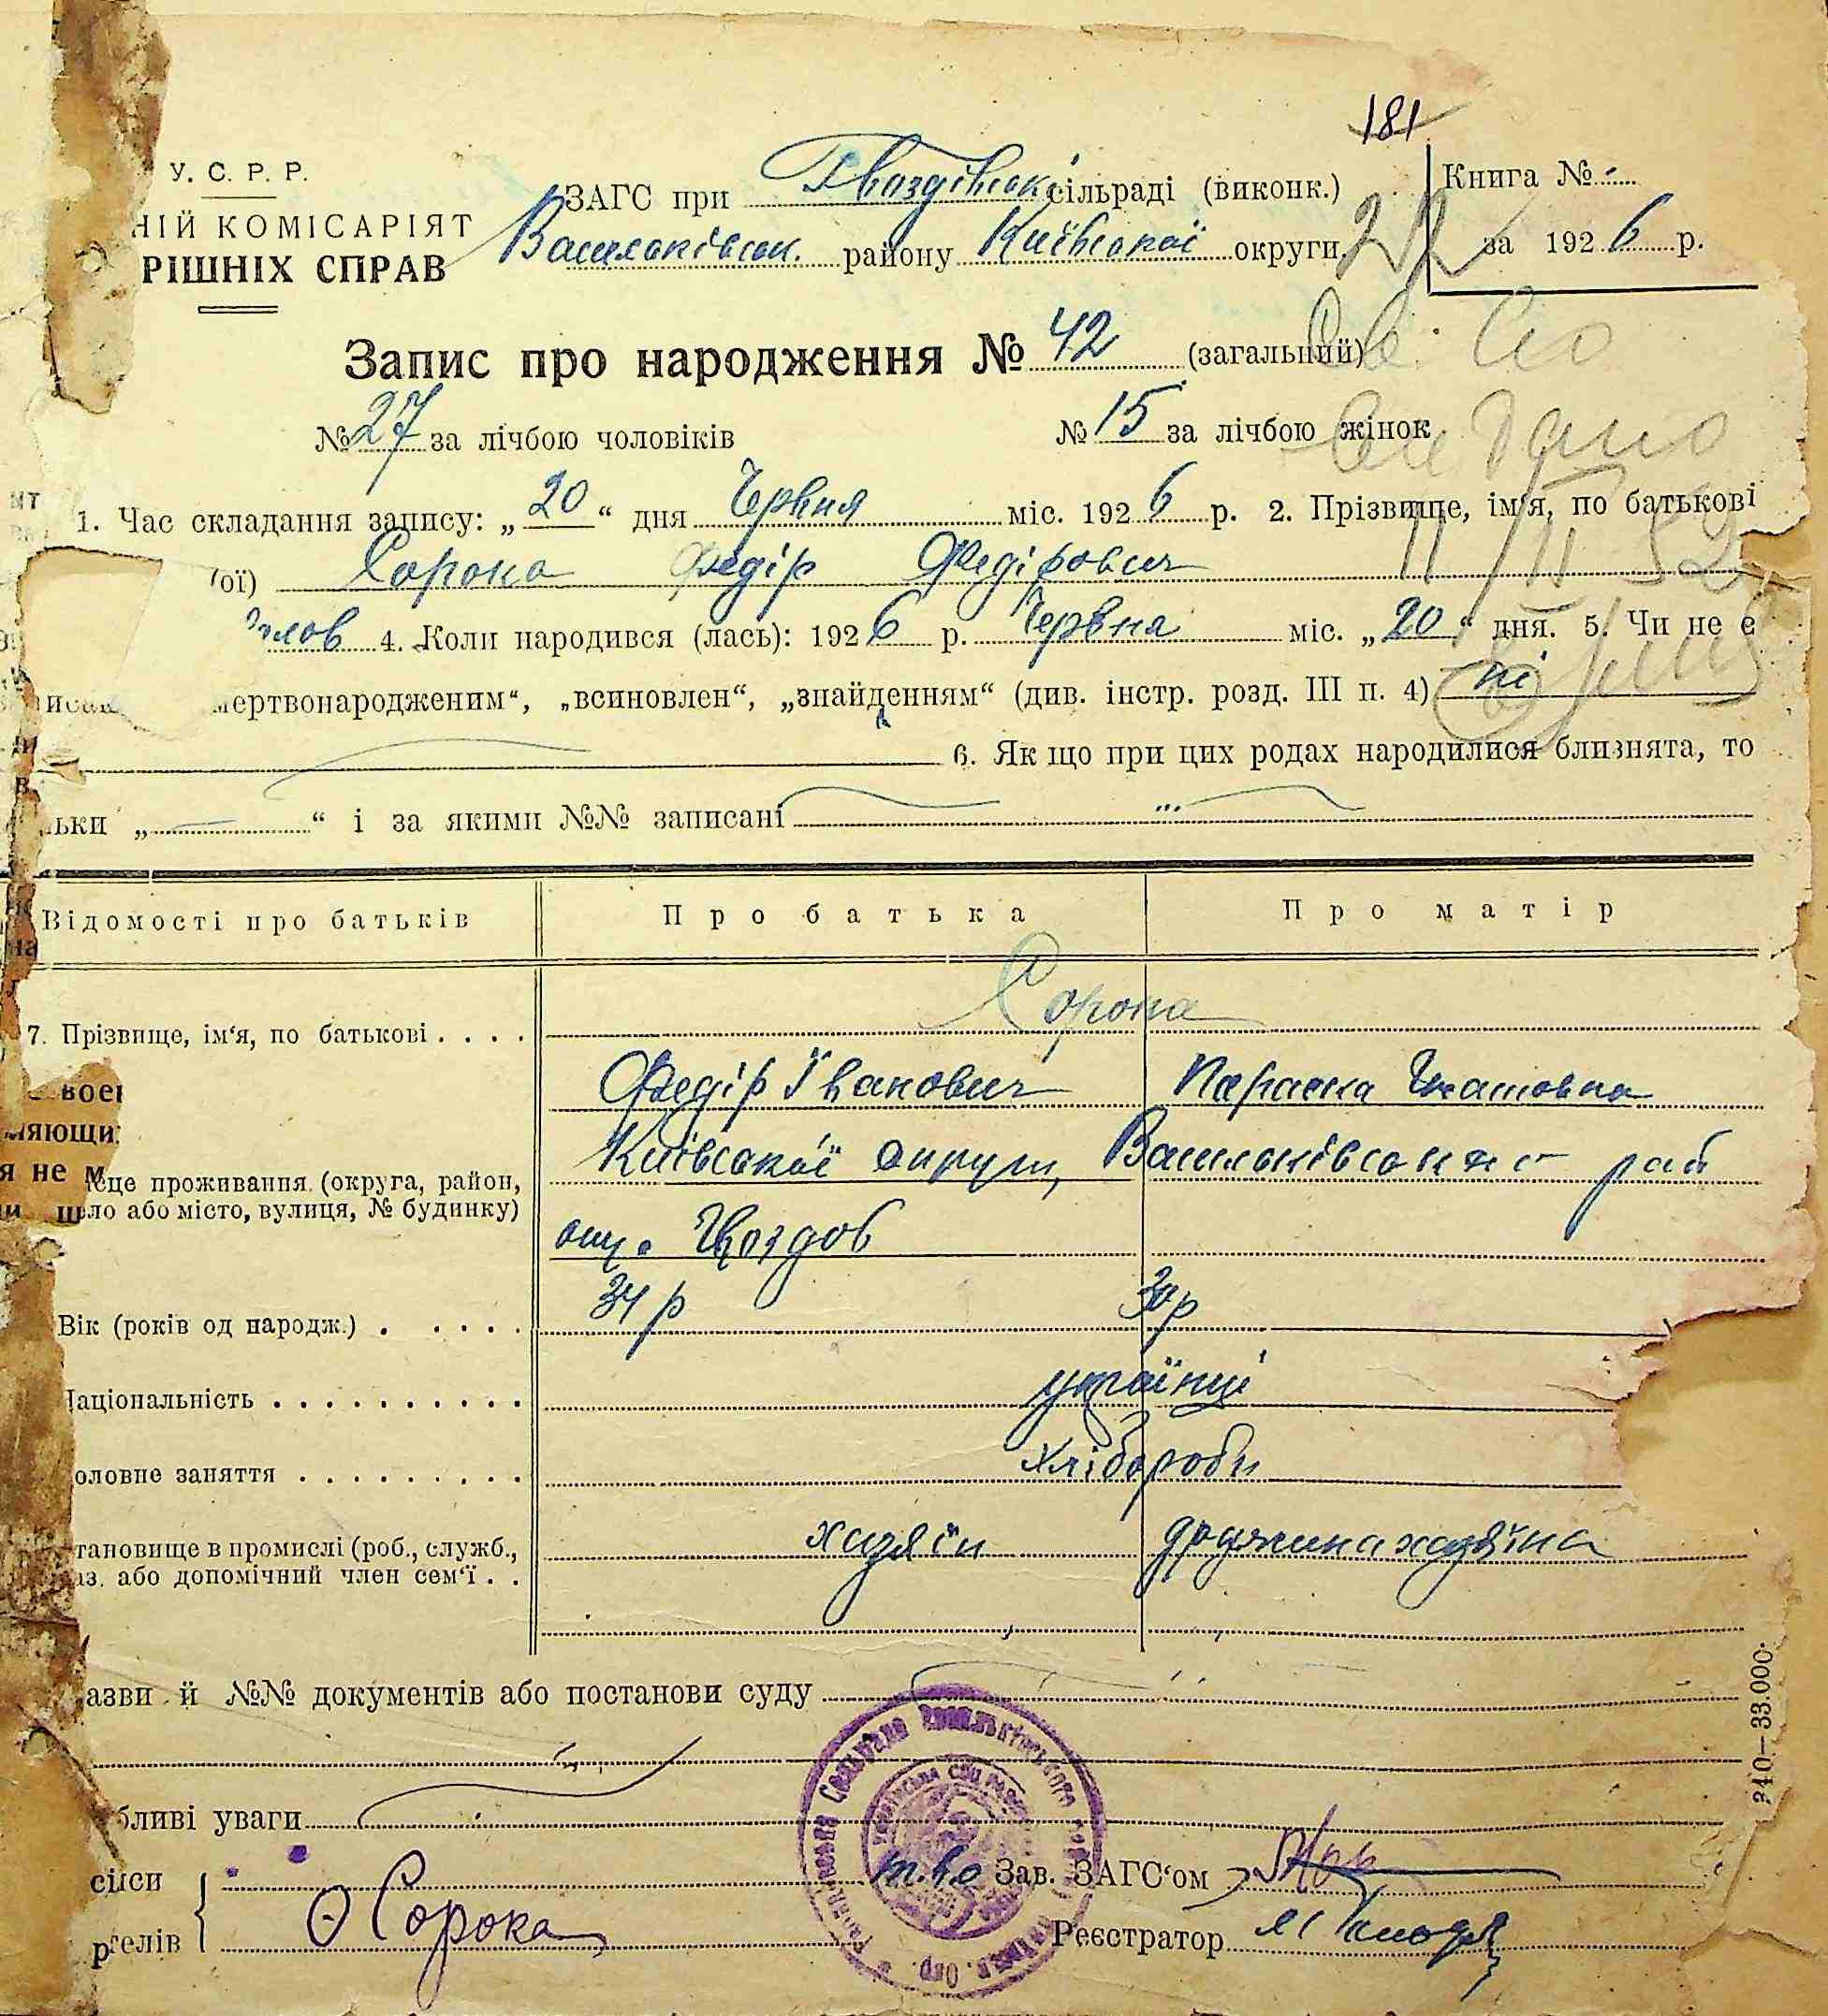 181
У. С. Р. Р.
ЗАГС при Гвоздівськ. сільраді (виконк.)
Книга №
НІЙ КОМІСАРІЯТ
РІШНІХ СПРАВ
Васильківськ. району Київської округи
за 1926 р.
Запис про народження № 42 (загальний)
№ 27 за лічбою чоловіків № 15 за лічбою жінок
1. Час складання запису: „20“ дня Червня міс. 1926 р. 2. Прізвище, ім‘я, по батькові
(ої) Сорока Федір Федірович
4. Коли народився (лась): 1926 р. Червня міс. „20“ дня. 5. Чи не є
11/II 52
мертвонародженим“, „всиновлен“, „знайденням“ (див. інстр. розд. III п. 4) ні
6. Як що при цих родах народилися близнята, то
льки „ “ і за якими №№ записані
Відомості про батьків Про батька Про матір
Сорока
7. Прізвище, ім‘я, по батькові
Федір Іванович Параска Гнатовна
Київської округи, Васильківського рай
це проживання (округа, район,
ло або місто, вулиця, № будинку)
Гвоздов
Вік (років од народж.) 34 р 30 р
Національність українці
оловне заняття хлібороби
тановище в промислі (роб., служб., хазяїн дружина хазяїна
аз. або допомічний член сем‘ї
азви й №№ документів або постанови суду
бливі уваги
т.в.о Зав. ЗАГС‘ом
Сорока
Реєстратор
240—33.000